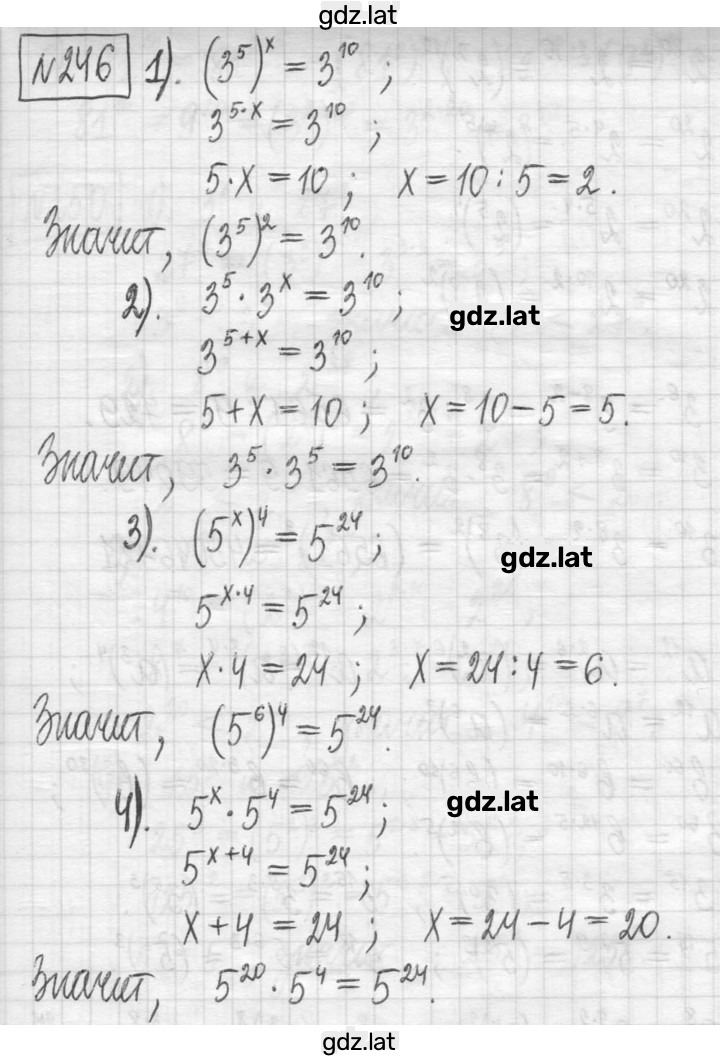 gdz.lat
№246 1). (3⁵)ˣ = 3¹⁰ ;
3⁵·ˣ = 3¹⁰ ;
5·x = 10 ; x = 10 : 5 = 2.
Значит, (3⁵)² = 3¹⁰.
2). 3⁵ · 3ˣ = 3¹⁰ ;
gdz.lat
3⁵⁺ˣ = 3¹⁰ ;
5 + x = 10 ; x = 10 – 5 = 5.
Значит, 3⁵ · 3⁵ = 3¹⁰.
3). (5ˣ)⁴ = 5²⁴ ;
gdz.lat
5ˣ·⁴ = 5²⁴ ;
x · 4 = 24 ; x = 24 : 4 = 6.
Значит, (5⁶)⁴ = 5²⁴.
4). 5ˣ · 5⁴ = 5²⁴ ;
gdz.lat
5ˣ⁺⁴ = 5²⁴ ;
x + 4 = 24 ; x = 24 – 4 = 20.
Значит, 5²⁰ · 5⁴ = 5²⁴.
gdz.lat